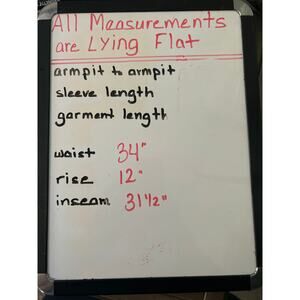 All Measurements
are Lying Flat
armpit to armpit
sleeve length
garment length
waist 34"
rise 12"
inseam 31 1/2"